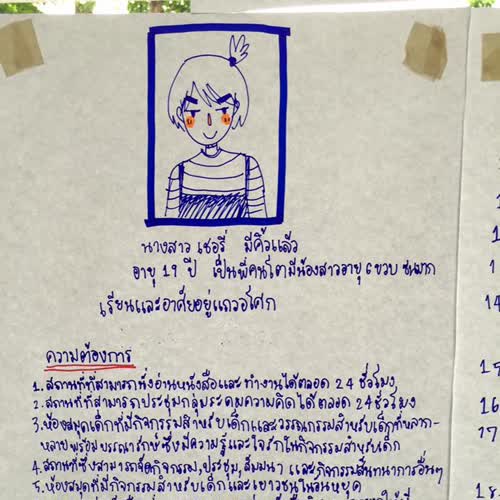 นางสาว เชอรี่ มีคิ้วแล้ว
อายุ 19 ปี เป็นพี่คนโตมีน้องสาวอายุ 6ขวบ ซนมาก
เรียนและอาศัยอยู่แถวอโศก
ความต้องการ
1. สถานที่ที่สามารถนั่งอ่านหนังสือและ ทำงานได้ตลอด 24 ชั่วโมง
2. สถานที่ที่สามารถประชุมกลุ่มระดมความคิดได้ตลอด 24 ชั่วโมง
3. ห้องสมุดเด็กที่มีกิจกรรมสำหรับเด็กและวรรณกรรมสำหรับเด็กที่หลาก-
หลาย พร้อมบรรณารักษ์ซึ่งมีความรู้และใจรักในกิจกรรมสำหรับเด็ก
4. สถานที่ซึ่งสามารถจัดกิจกรรม, ประชุม, สัมมนา และกิจกรรมสันทนาการอื่นๆ
5. ห้องสมุดที่มีกิจกรรมสำหรับเด็กและเยาวชนในวันหยุด
14
15
16
17